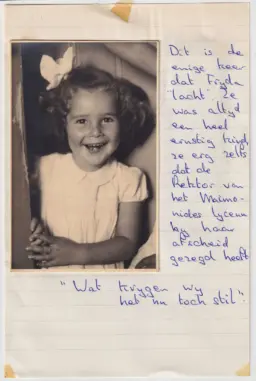 Dit is de
enige keer
dat Fryda
lacht. Ze
was altyd
een heel
ernstig kind,
zo erg zelfs
dat de
Rektor van
het Maimo-
nides Lyceum
by haar
afscheid
gezegd heeft
"Wat krygen wy
het nu toch stil".